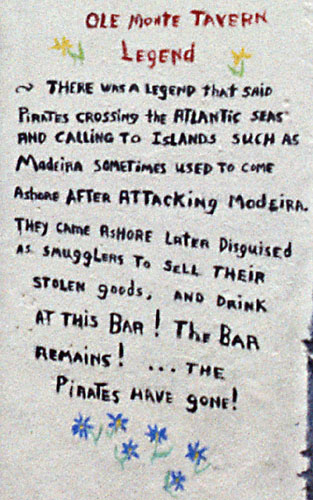 OLE MONTE TAVERN
LEGEND
~ THERE WAS A LEGEND that SAID
PIRATES CROSSING the ATLANTIC SEAS
AND CALLING TO ISLANDS SUCH AS
MADEIRA SOMETIMES USED TO COME
ASHORE AFTER ATTACKING MODEIRA.
THEY CAME ASHORE LATER DISGUISED
AS SMUGGLERS TO SELL THEIR
STOLEN goods, AND DRINK
AT THIS BAR! THE BAR
REMAINS! ... THE
PIRATES HAVE GONE!